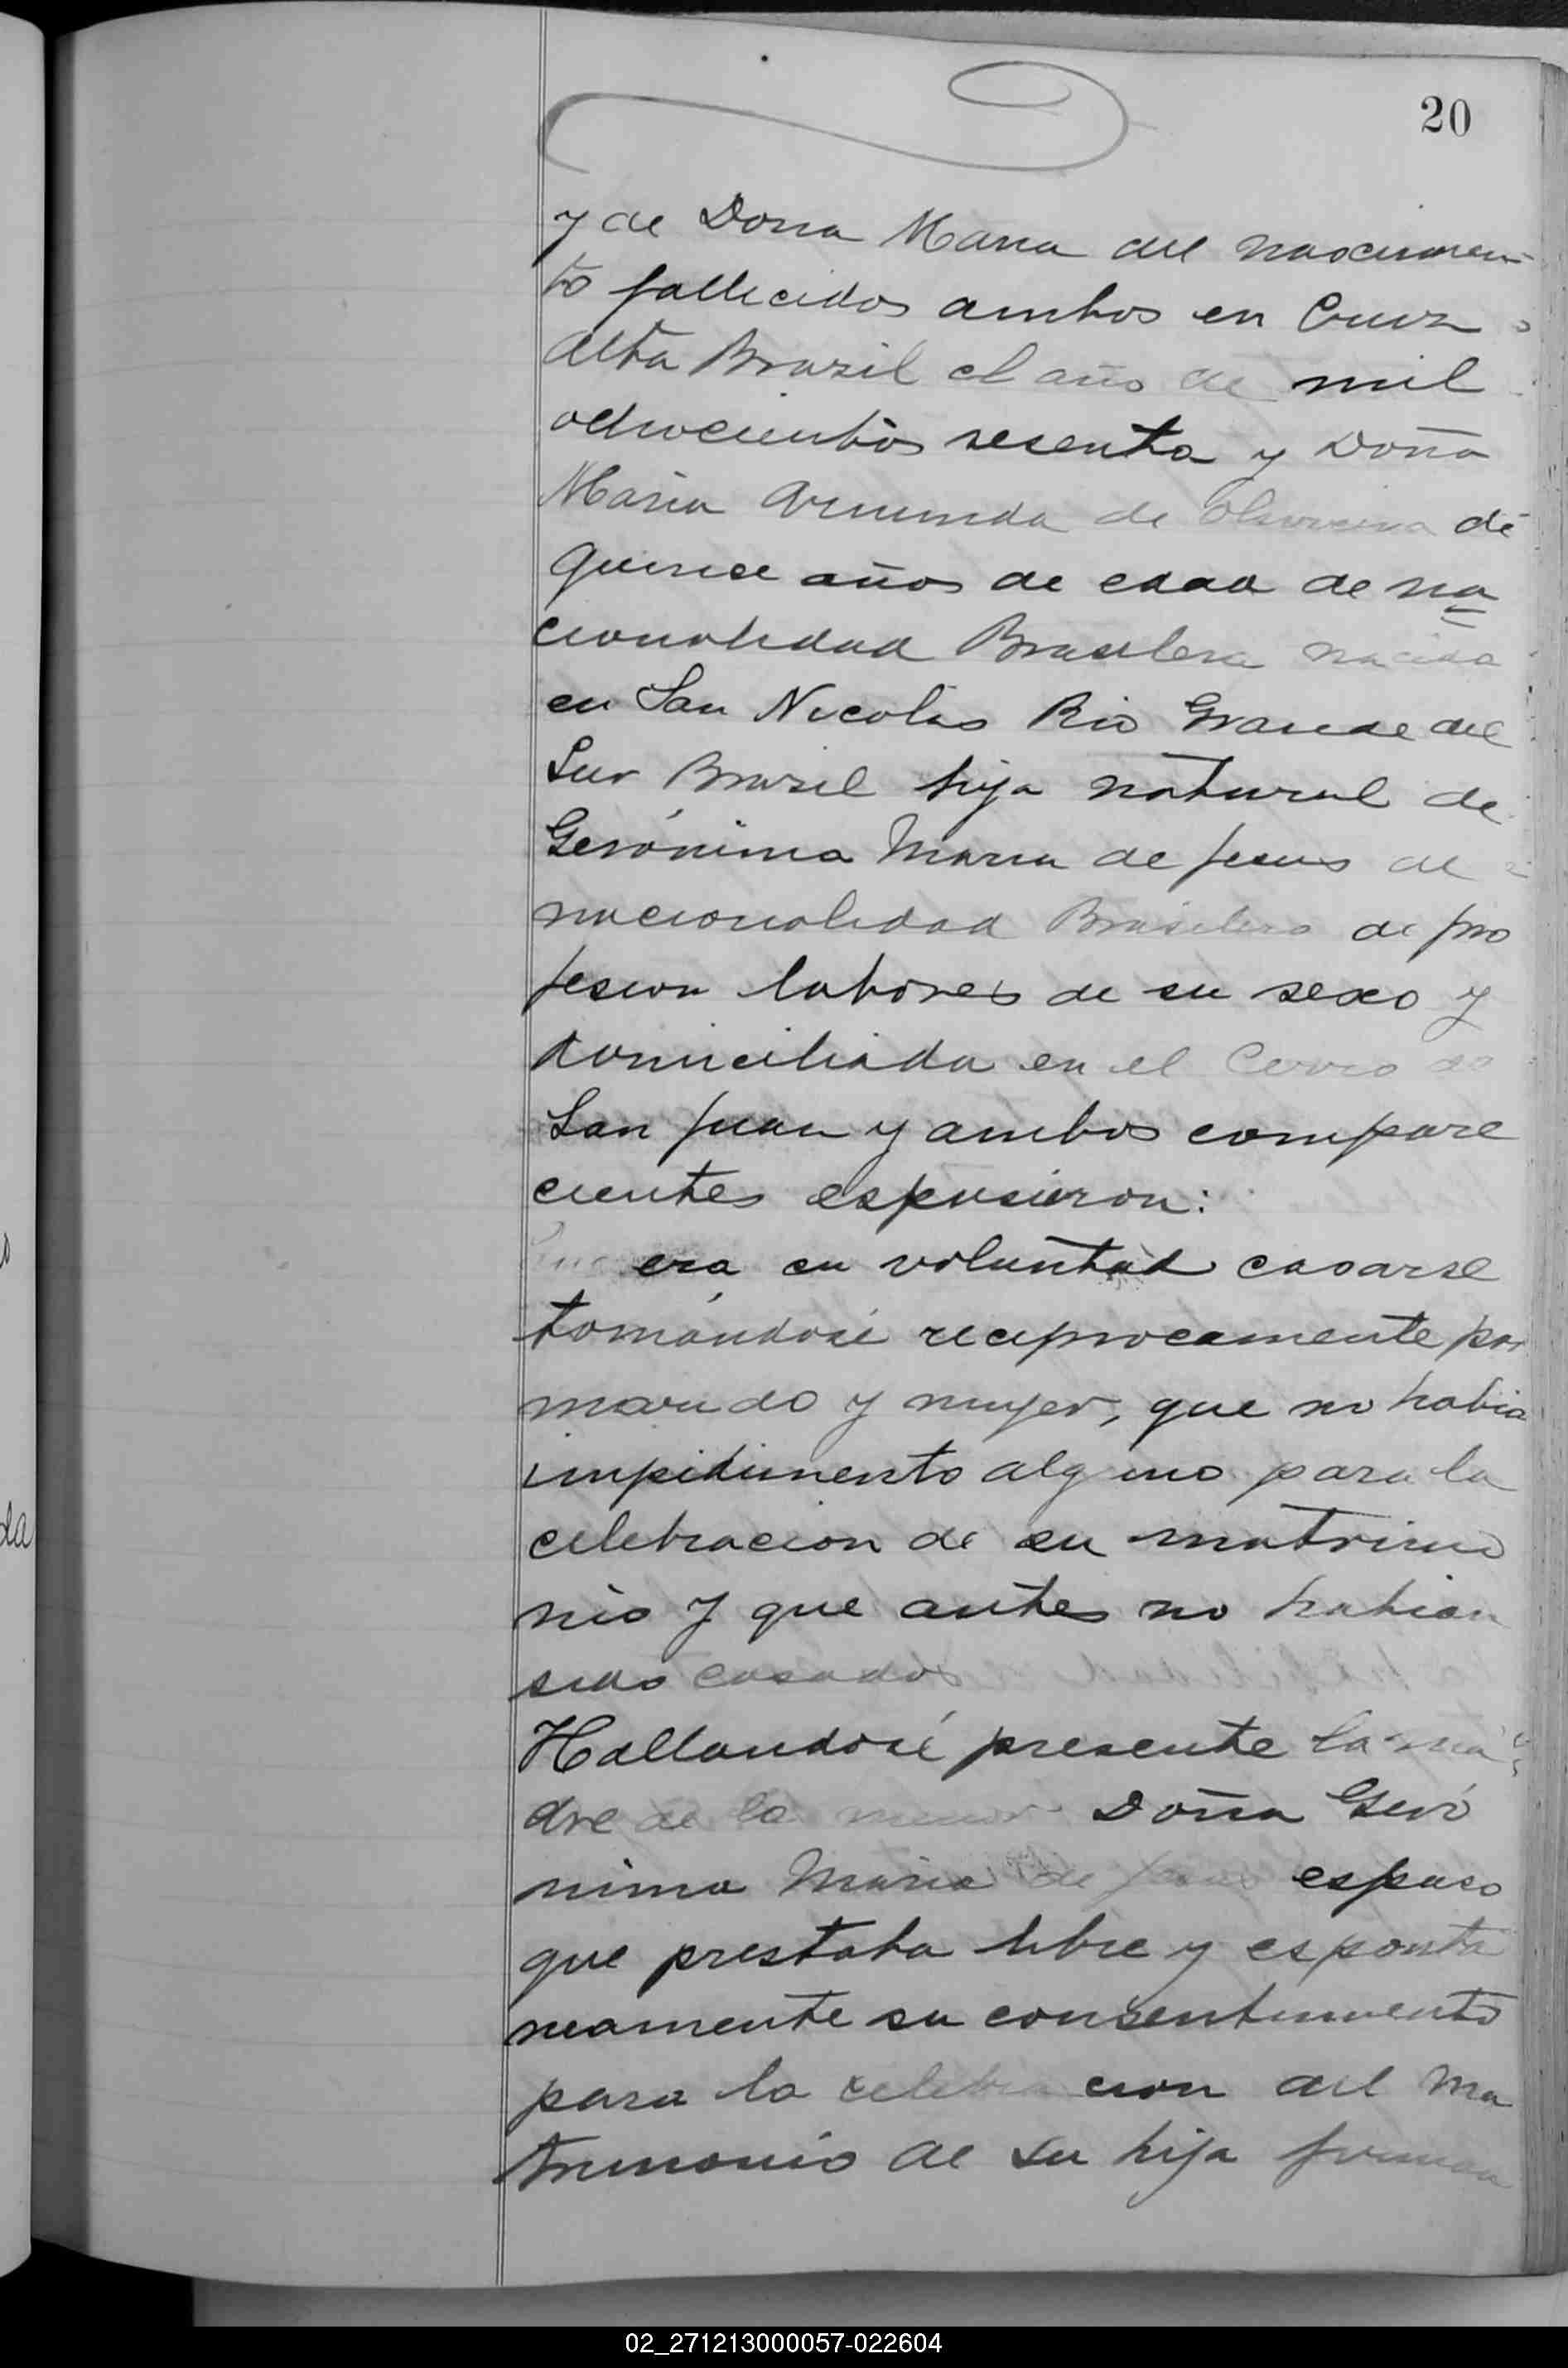 20
y de Dona Maria del nascimen
to fallecidos ambos en Cruz
Alta Brazil el año de mil
ochocientos sesenta y Doña
Maria Arminda de Oliveira de
quince años de edad de na
cionalidad Brasilera nacida
en San Nicolas Rio Grande del
Sur Brazil hija natural de
Gerónima Maria de Jesus de
nacionalidad Brasilera de pro
fesion labores de su sexo y
domiciliada en el Cerro de
San Juan y ambos compare
cientes espusieron:
Que era su voluntad casarse
tomándosé reciprocamente por
marido y mujer, que no habia
impidimento alguno para la
celebracion de su matrimo
nio y que antes no habian
sido casados
Hallandosé presente la ma
dre de la menor Doña Geró
nima Maria de Jesus espuso
que prestaba libre y esponta
neamente su consentimiento
para la celebracion del ma
trimonio de su hija
02_271213000057-022604